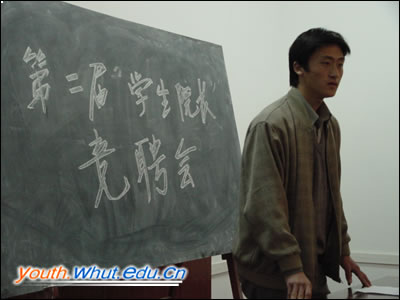 第二届“学生院长”
竞聘会
youth.Whut.edu.cn